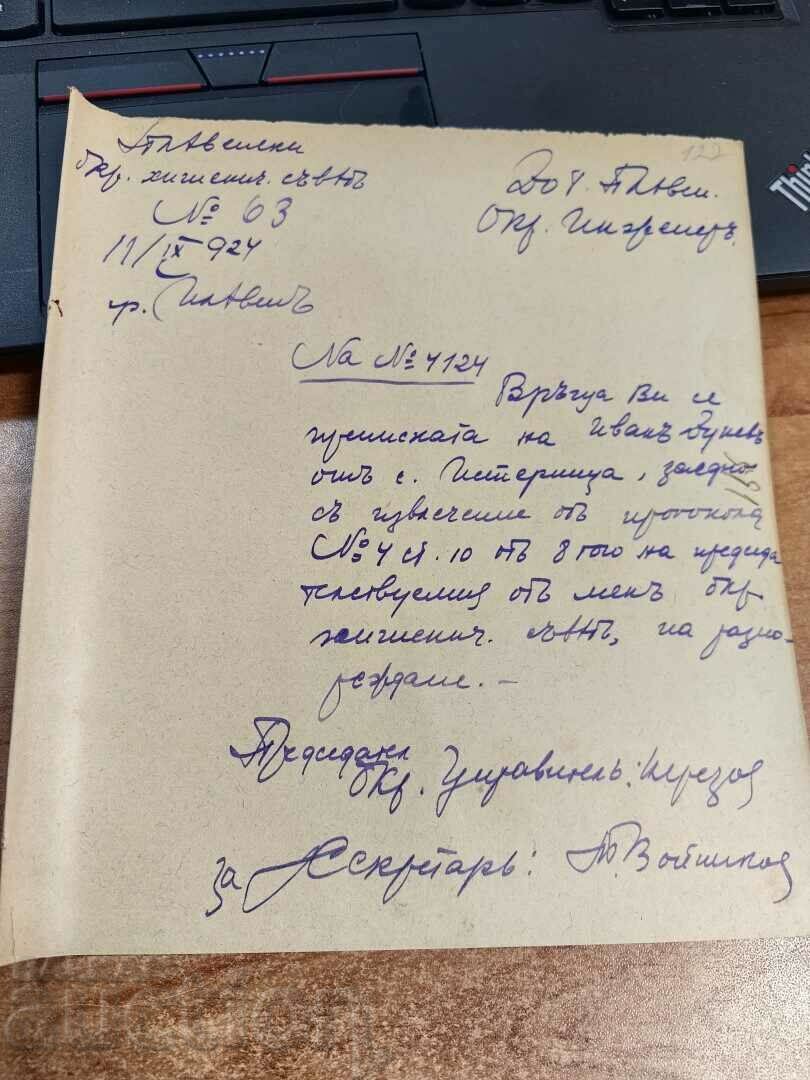 Плѣвенски
Окр. хигиенич. съвѣтъ
№ 63
11/IX 924
гр. Плѣвенъ
122
До г. Плѣвен.
Окр. Инженеръ.
На № 4124
Връща Ви се
преписката на Иванъ
отъ с. Петерница, заедно
съ извлечение отъ протокола
№ 4 ст. 10 отъ 8 того на председа
телствуемия отъ менъ Окр.
хигиенич. съвѣтъ, на разпо-
реждане. —
Председател
Окр. Управитель:
за Секретарь: П. Войников
Think